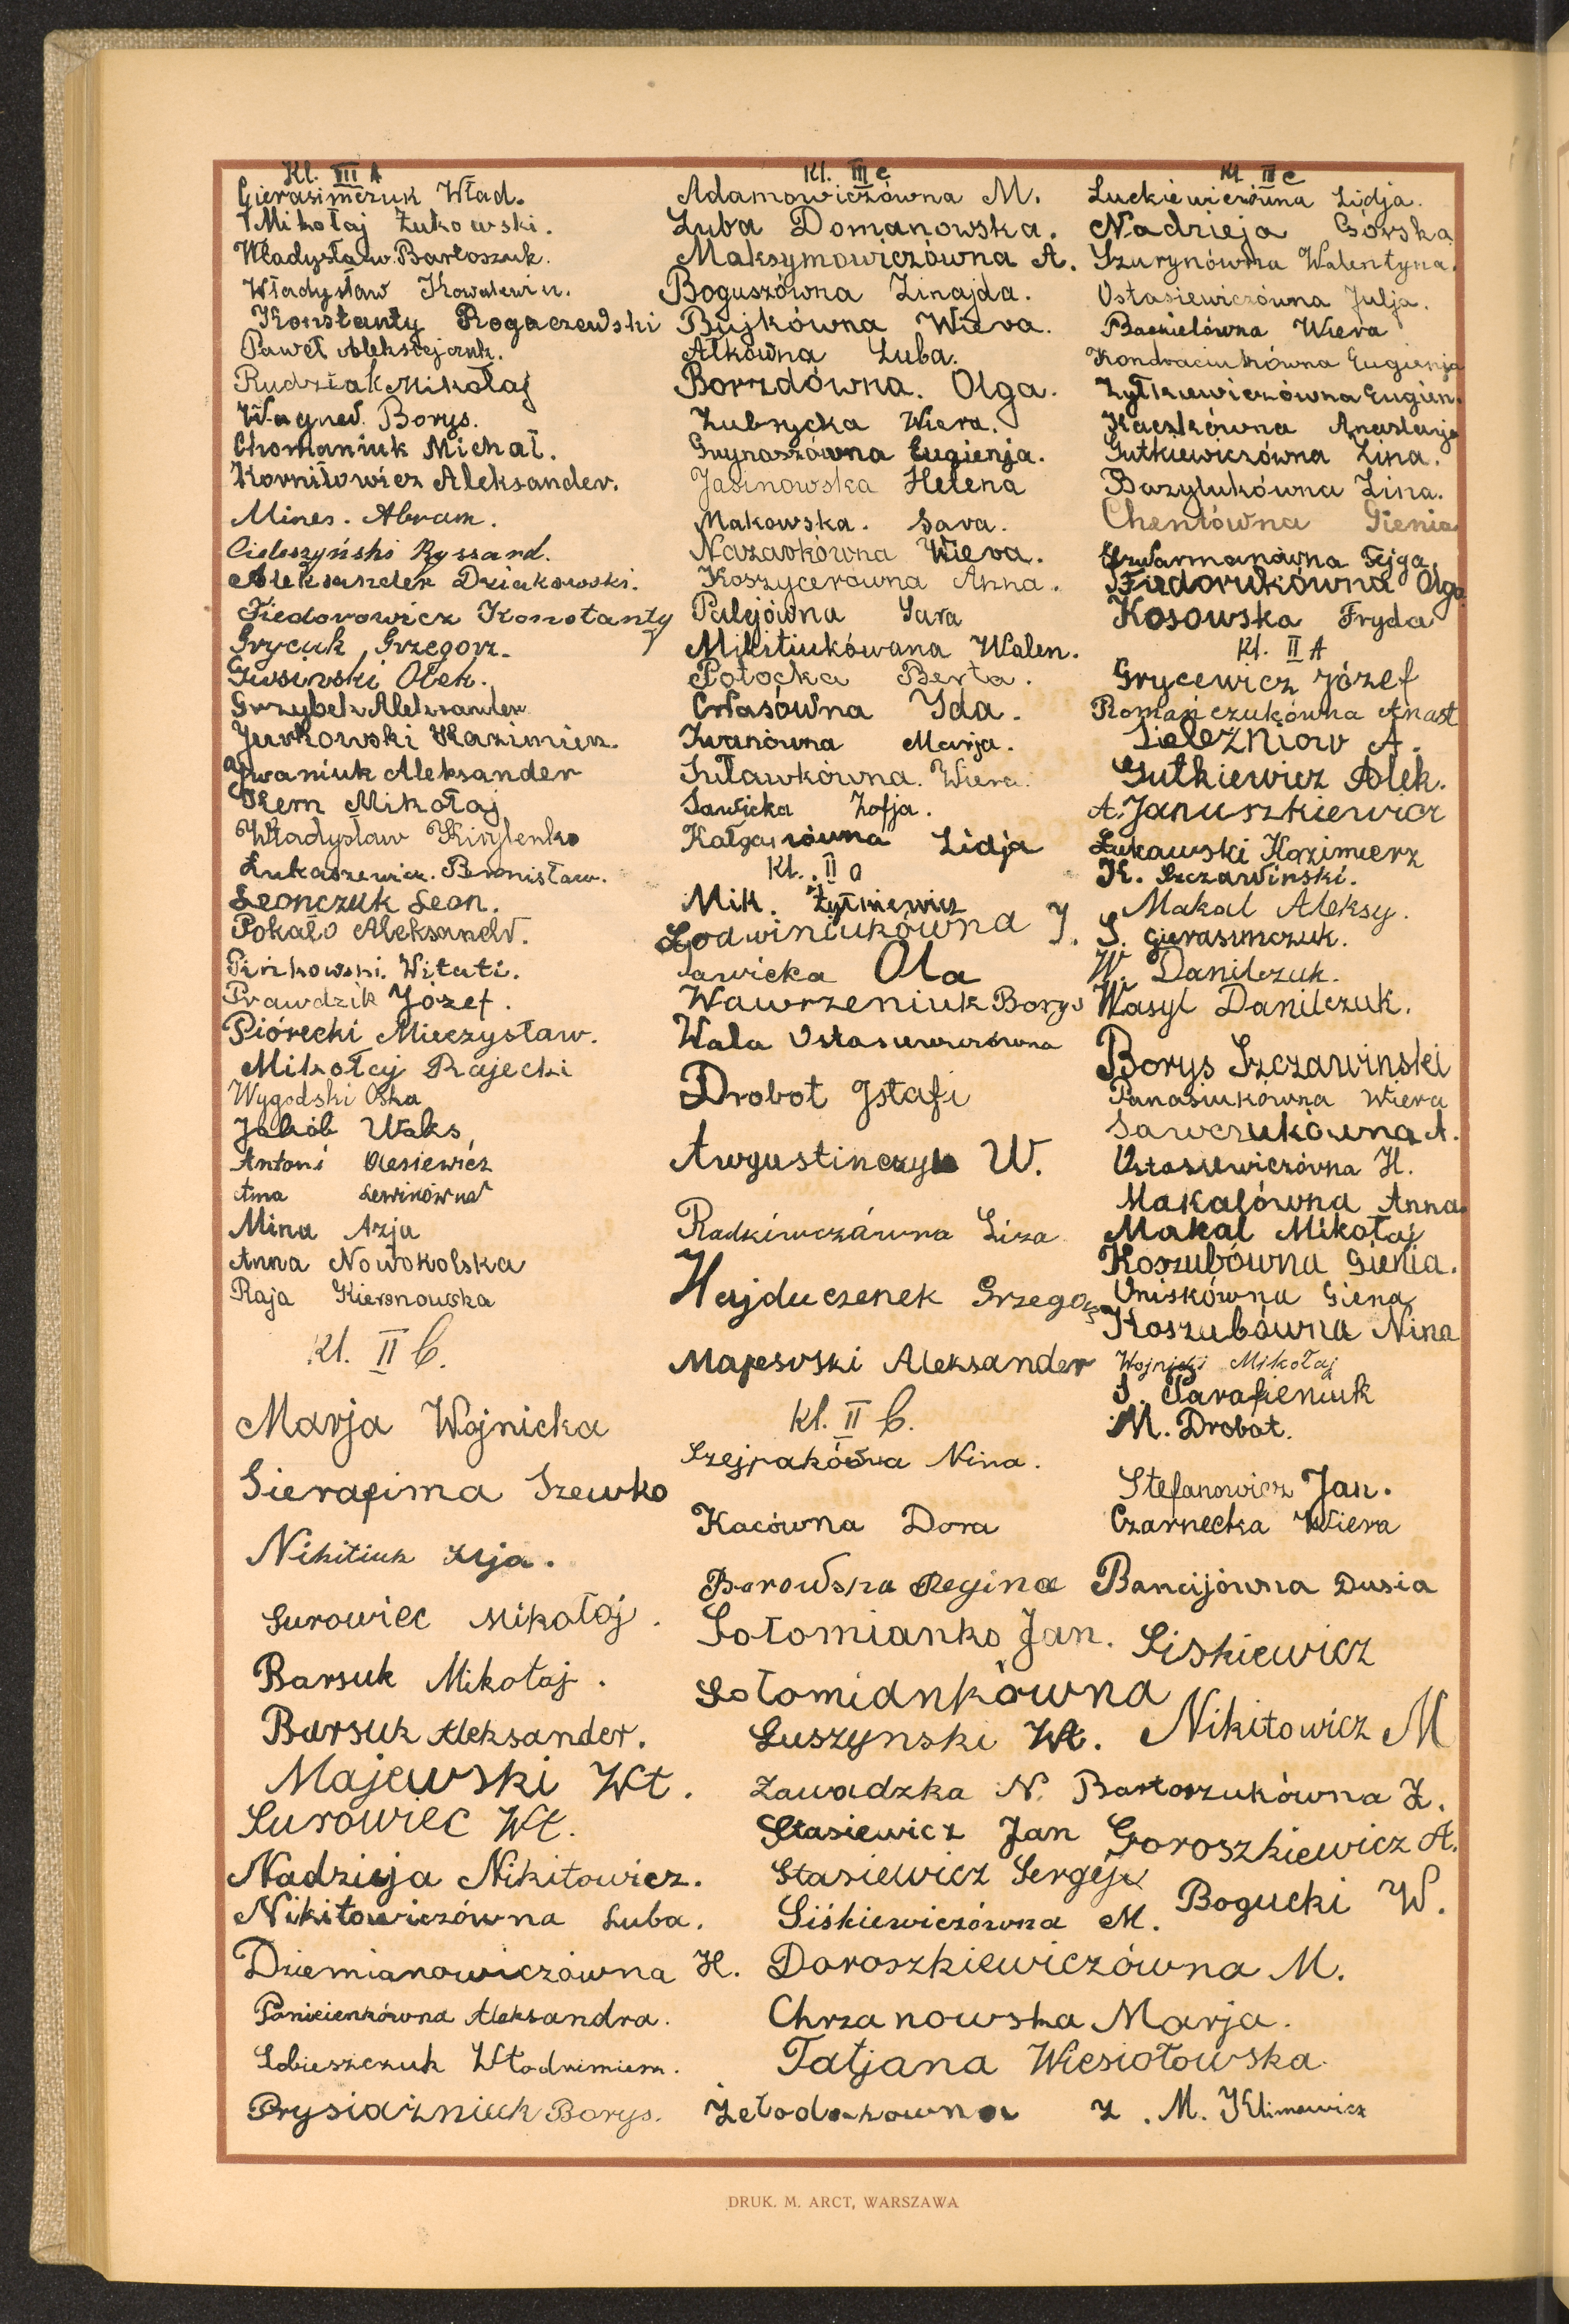 Kl. III A
Gierasimczuk Wład.
Mikołaj Żukowski.
Władysław Bartoszuk.
Władysław Kowalewicz.
Konstanty Rogaczewski
Paweł Aleksiejczuk.
Rudziak Mikołaj
Wagner Borys.
Chomaniuk Michał.
Korniłowicz Aleksander.
Mines. Abram.
Cieleszyński Ryszard.
Aleksander Dziakowski.
Fiedorowicz Konstanty
Grycuk, Grzegorz.
Gusinski Olek.
Grzybek Aleksander
Jurkowski Kazimierz.
Iwaniuk Aleksander
Kern Mikołaj
Władysław Kirylenko
Łukaszewicz. Bronisław.
Leonczuk Leon.
Pokało Aleksandr.
Pińkowski. Witati.
Prawdzik Józef.
Piórecki Mieczysław.
Mikołaj Rajecki
Wygodski Oska
Jakób Waks
Antoni Olesiewicz
Anna Lewinówna
Mina Azja
Anna Nowokolska
Raja Kiersnowska
Kl. II b.
Marja Wojnicka
Sierafima Szewko
Nikitiuk Ilja.
Surowiec Mikołaj.
Barsuk Mikołaj.
Barsuk Aleksander.
Majewski Wł.
Surowiec Wł.
Nadzieja Nikitowicz.
Nikitowiczówna Luba.
Dziemianowiczówna H.
Panicienkówna Aleksandra.
Sobieszczuk Włodzimierz.
Prysiażniuk Borys.
Kl. III c
Adamowiczówna M.
Luba Domanowska.
Maksymowiczówna A.
Boguszówna Zinajda.
Bujkówna Wiera.
Ałkówna Luba.
Borzdówna. Olga.
Zubrycka Wiera.
Grynaszówna Eugienja.
Jasinowska Helena
Makowska. Sara.
Nazarkówna Wiera.
Koszycerówna Anna.
Palejówna Sara
Mikitiukówana Walen.
Potocka Berta.
Własówna Ida.
Iwanówna Marja.
Suławkówna. Wiera.
Sawicka Zofja.
Lidja
Kl. II a
Mik. Żytkiewicz
Łodwiniukówna J.
Sawicka Ola
Wawrzeniuk Borys
Wala Ostasiewiczówna
Drobot Jstafi
Awgustinczyk W.
Radkiewczáwna Liza
Hajduczenek Grzegorz
Majewski Aleksander
Kl. II b.
Szejpakówna Nina.
Kacówna Dora
Borowska Regina
Sołomianko Jan.
Sołomiankówna
Łuszynski Wł.
Zawadzka N.
Stasiewicz Jan
Stasiewicz Sergeju
Siśkiewiczówna M.
Doroszkiewiczówna M.
Chrzanowska Marja.
Tatjana Wiesiołowska.
Żełodakowna
Kl. III c
Luckiewiczówna Lidja.
Nadzieja Górska
Szurynówna Walentyna.
Ostasiewiczówna Julja.
Bacielówna Wiera
Kondraciukówna Eugienja
Żytkiewiczówna Eugien.
Kaczkówna Anastazja
Gutkiewiczówna Zina.
Bazylukówna Zina.
Chentówna Gienia
Szwarmanówna Fejga.
Fiedorukówna Olga.
Kosowska Fryda
Kl. II A
Grycewicz Józef
Romańczukówna Anast
Sielezniow A.
Gutkiewicz Alek.
A. Januszkiewicz
Łukawski Kazimierz
K. Szczawinski.
Makal Aleksy.
S. Gierasimczuk.
W. Danilczuk.
Wasyl Danilczuk.
Borys Szczawinski
Panasiukówna Wiera
Sawczukówna A.
Ostasiewiczówna H.
Makalówna Anna.
Makal Mikołaj
Koszubówna Gienia.
Oniskówna Giena
Koszubówna Nina
Wojnicki Mikołaj
S. Parafieniuk
M. Drobot.
Stefanowicz Jan.
Czarnecka Wiera
Bancijówna Dusia
Siśkiewicz
Nikitowicz M
Bartoszukówna Z.
Goroszkiewicz A.
Bogucki W.
Z. M. Klimowicz
DRUK. M. ARCT, WARSZAWA